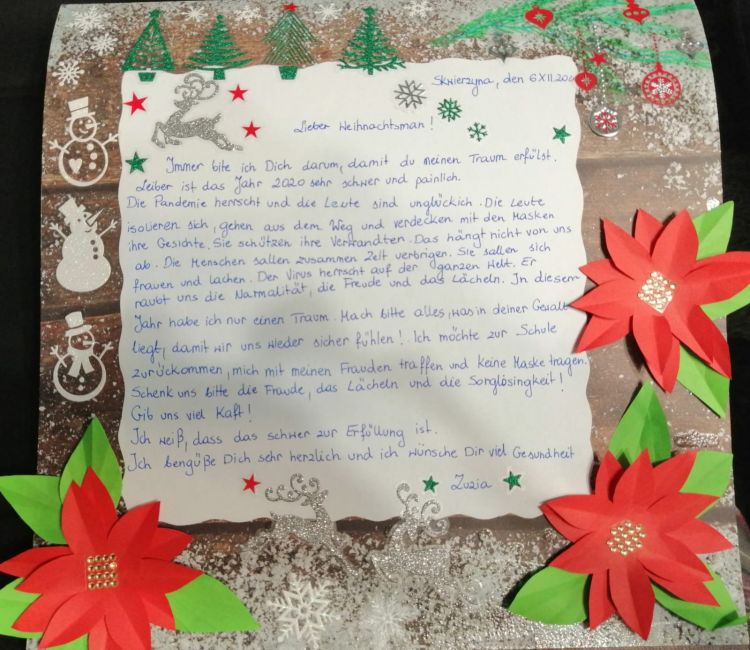 Skwierzyna, den 6 XII 20
Lieber Weihnachtsman!
Immer bite ich Dich darum, damit du meinen Traum erfülst.
Leiber ist das Jahr 2020 sehr schwer und painlich.
Die Pandemie herrscht und die Leute sind unglückich. Die Leute
isolieren sich, gehen aus dem Weg und verdecken mit den Masken
ihre Gesichte. Sie schützen ihre Verwandten. Das hängt nicht von uns
ab. Die Menschen sallen zusammen Zeit verbrigen. Sie sallen sich
frauen und lachen. Der Virus herrscht auf der ganzen Welt. Er
raubt uns die Normalität, die Freude und das Lächeln. In diesem
Jahr habe ich nur einen Traum. Mach bitte alles, was in deiner Gewalt
liegt, damit wir uns wieder sicher fühlen! Ich möchte zur Schule
zurückommen, mich mit meinen Frauden traffen und keine Maske tragen.
Schenk uns bitte die Fraude, das Lächeln und die Sorglösingkeit!
Gib uns viel Kaft!
Ich weiß, dass das schwer zur Erfüllung ist.
Ich bengüße Dich sehr herzlich und ich wünsche Dir viel Gesundheit
Zuzia